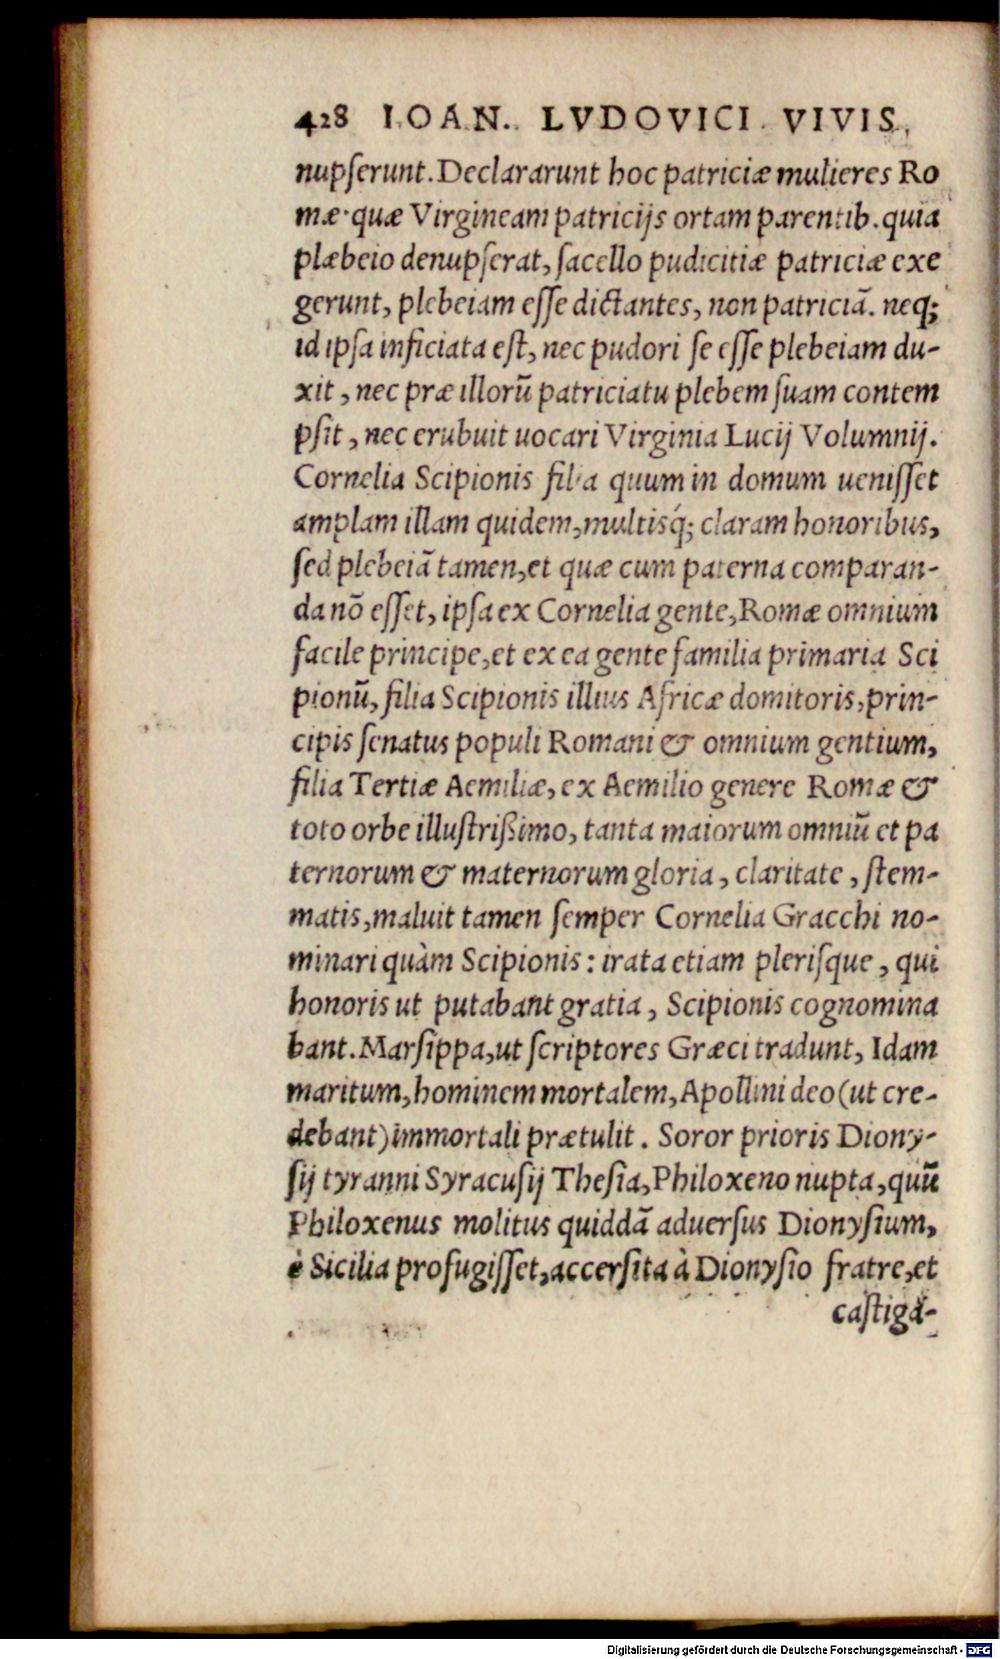 428 IOAN. LVDOVICI VIVIS,
nupſerunt. Declararunt hoc patriciæ mulieres Ro
mæ· quæ Virgineam patricijs ortam parentib. quia
plæbeio denupſerat, ſacello pudicitiæ patriciæ exe
gerunt, plebeiam eſſe dictantes, non patriciã. neq;
id ipſa inficiata eſt, nec pudori ſe eſſe plebeiam du-
xit, nec præ illorũ patriciatu plebem ſuam contem
pſit, nec erubuit uocari Virginia Lucij Volumnij.
Cornelia Scipionis filia quum in domum ueniſſet
amplam illam quidem, multisq́; claram honoribus,
ſed plebeiã tamen, et quæ cum paterna comparan-
da nõ eſſet, ipſa ex Cornelia gente, Romæ omnium
facile principe, et ex ea gente familia primaria Sci
pionũ, filia Scipionis illius Africæ domitoris, prin-
cipis ſenatus populi Romani & omnium gentium,
filia Tertiæ Aemiliæ, ex Aemilio genere Romæ &
toto orbe illuſtrißimo, tanta maiorum omniũ et pa
ternorum & maternorum gloria, claritate, ſtem-
matis, maluit tamen ſemper Cornelia Gracchi no-
minari quàm Scipionis: irata etiam pleriſque, qui
honoris ut putabant gratia, Scipionis cognomina
bant. Marſippa, ut ſcriptores Græci tradunt, Idam
maritum, hominem mortalem, Apollini deo (ut cre-
debant) immortali prætulit. Soror prioris Diony-
ſij tyranni Syracuſij Theſia, Philoxeno nupta, quũ
Philoxenus molitus quiddã aduerſus Dionyſium,
è Sicilia profugiſſet, accerſita à Dionyſio fratre, et
caſtiga-
Digitalisierung gefördert durch die Deutsche Forschungsgemeinschaft - DFG